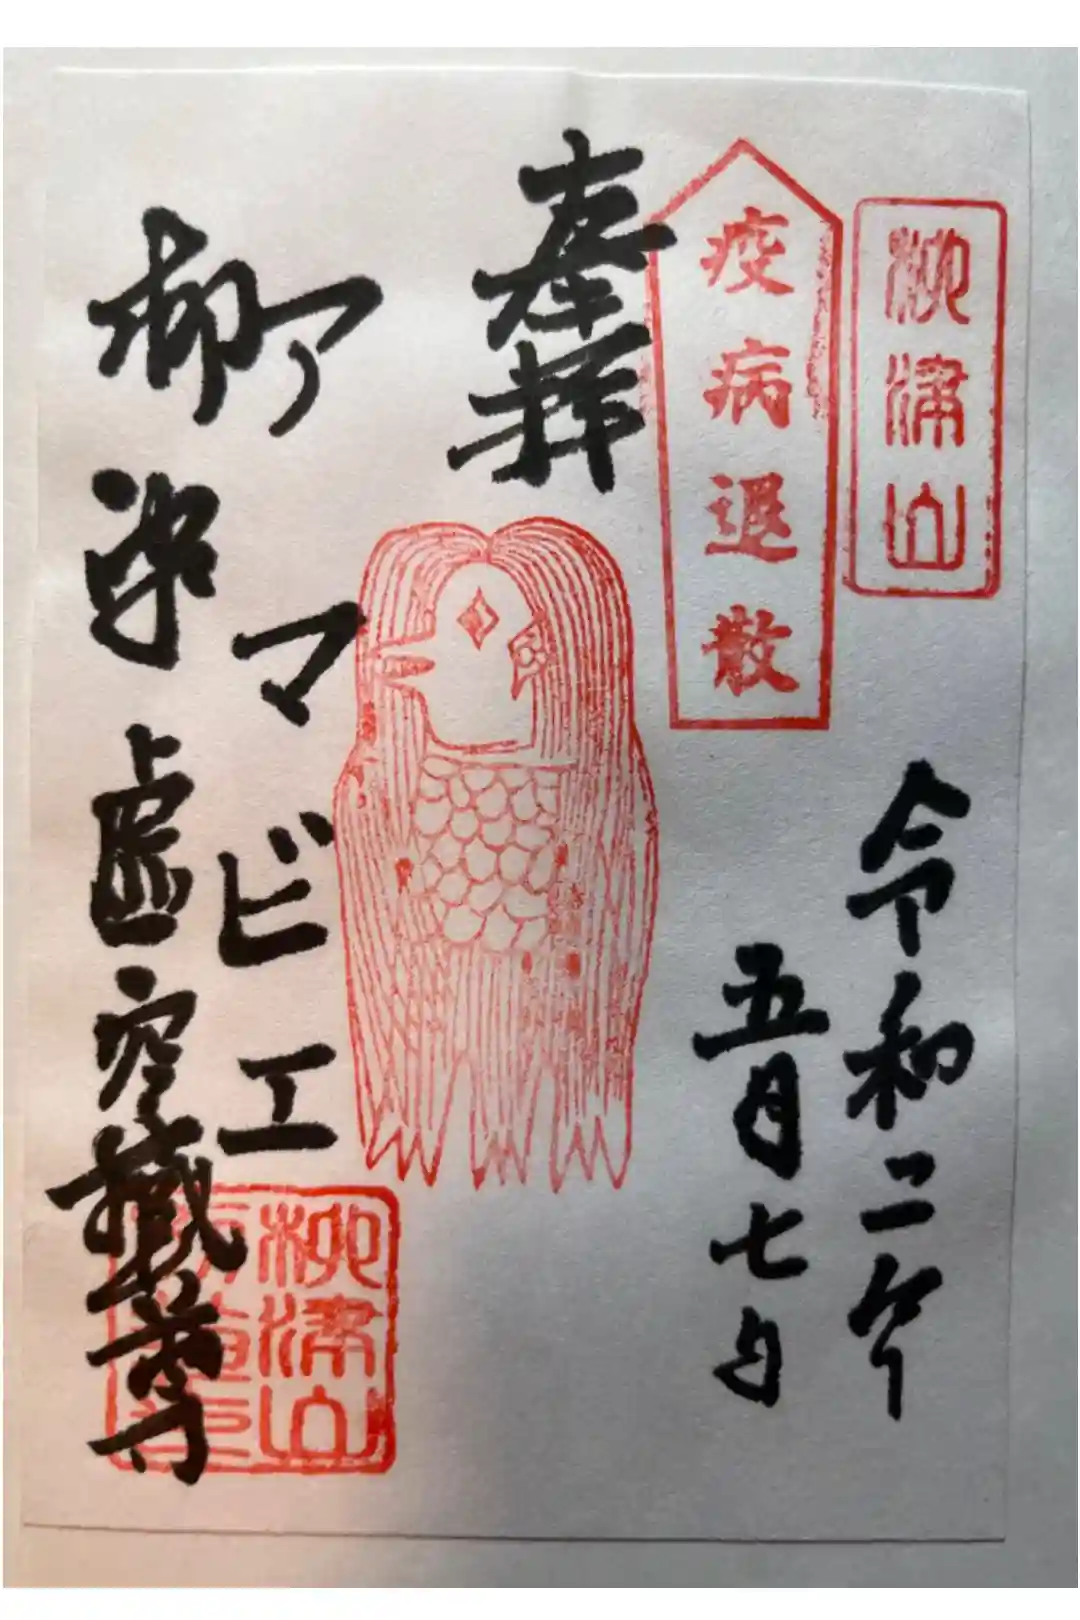 柳津山
疫病退散
令和二年
五月七日
奉拝
アマビエ
虚空蔵尊
柳津山